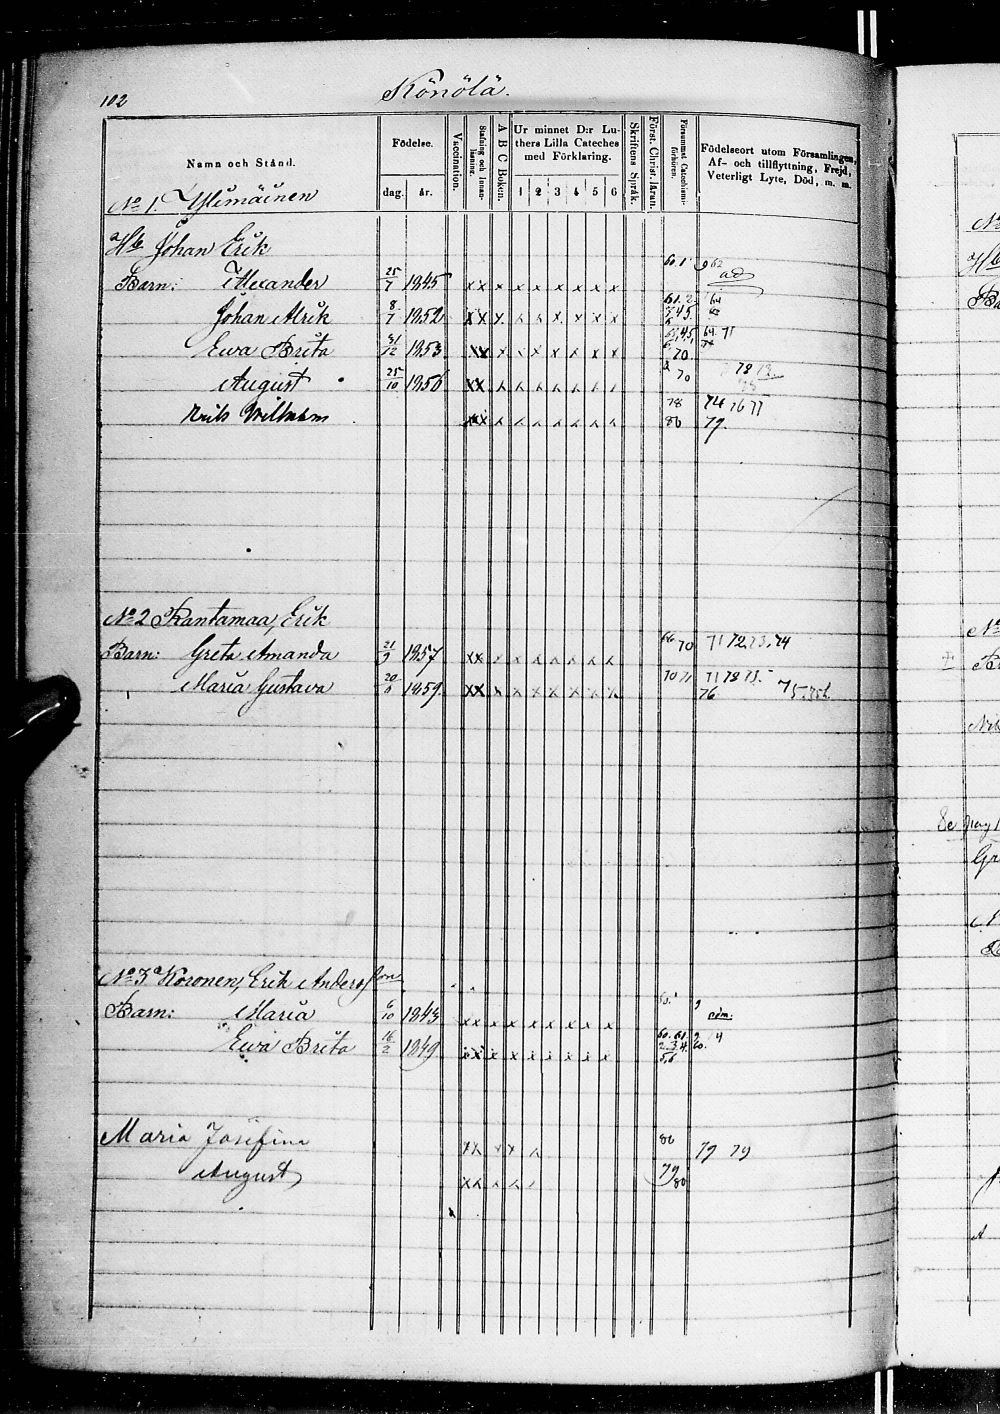 102
Könölä.
Namn och Stånd.
Födelse.
dag.
år.
Vaccination.
Stafning och Innanläsning.
A B C Boken.
Ur minnet D:r Luthers Lilla Cateches med Förklaring.
1 2 3 4 5 6
Skriftens Språk.
Först. Christ. läran.
Försummat Catechismiförhören.
Födelseort utom Församlingen,
Af- och tillflyttning, Frejd,
Veterligt Lyte, Död, m. m.
No 1. Ylimäinen
Johan Erik
Barn: Alexander 25/7 1845 x x x x x x x x x 60.1 62
Johan Alrik 8/7 1852 x x x x x x x x x 61.2 64
Ewa Brita 31/12 1853 x x x x x x x x x 70 69. 71
August 25/10 1856 x x x x x x x x x 70 72
Erik Wilhelm x x x x x x x x x 78 80 74 76 77 79.
No 2 Rantamaa, Erik
Barn: Greta Amanda 21/9 1857 x x x x x x x x x 66 70 71 72. 73. 74
Maria Gustava 20/6 1859. x x x x x x x x x 70 71 71 72 73. 76
No 3 Koronen, Erik Andersson
Barn: Maria 6/10 1843 x x x x x x x x x
Ewa Brita 16/2 1849 x x x x x x x x x 60. 61. 2. 3. 4. 5, 6
Maria Josefina x x x x x 80 79 79
August x x x x 79 80